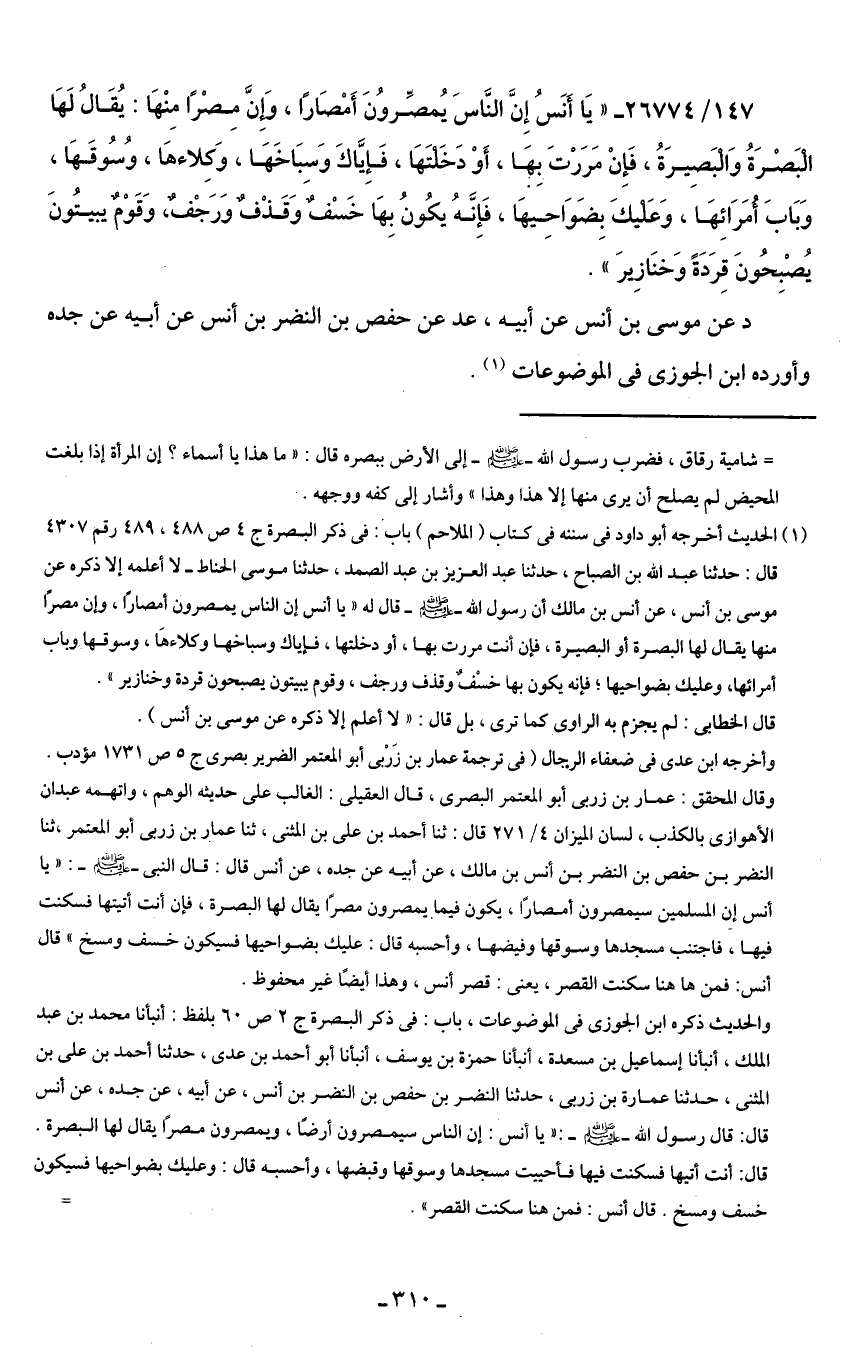 ١٤٧/ ٢٦٧٧٤ـ « يَا أَنَسُ إِنَّ النَّاسَ يُمصِّرونَ أَمْصَارًا ، وَإِنَّ مِصْرًا مِنْهَا : يُقَالُ لَهَا
الْبَصْرَةُ وَالْبَصِيرَةُ ، فَإِنْ مَرَرْتَ بِهَا ، أَوْ دَخَلْتَهَا ، فَإِيَّاكَ وَسِبَاخَهَا ، وَكِلاءهَا ، وَسُوقَهَا ،
وَبَابَ أُمَرَائِهَا ، وَعَلَيْكَ بِضَوَاحِيهَا ، فَإِنَّهُ يكُونُ بِهَا خَسْفٌ وَقَذْفٌ وَرَجْفٌ، وَقَوْمٌ يبيتُونَ
يُصْبِحُونَ قِرَدَةً وَخَنَازِيرَ » .
د عن موسى بن أنس عن أبيه ، عد عن حفص بن النضر بن أنس عن أبيه عن جده
وأورده ابن الجوزى فى الموضوعات (١) .
= شامية رقاق ، فضرب رسول الله ـ ﷺ ـ إلى الأرض ببصره قال : « ما هذا يا أسماء ؟ إن المرأة إذا بلغت
المحيض لم يصلح أن يرى منها إلا هذا وهذا » وأشار إلى كفه ووجهه .
(١) الحديث أخرجه أبو داود فى سننه فى كتاب ( الملاحم ) باب : فى ذكر البصرة ج ٤ ص ٤٨٨ ، ٤٨٩ رقم ٤٣٠٧
قال : حدثنا عبد الله بن الصباح ، حدثنا عبد العزيز بن عبد الصمد ، حدثنا موسى الحناط ـ لا أعلمه إلا ذكره عن
موسى بن أنس ، عن أنس بن مالك أن رسول الله ـ ﷺ ـ قال له « يا أنس إن الناس يمصرون أمصارًا ، وإن مصرًا
منها يقال لها البصرة أو البصيرة ، فإن أنت مررت بها ، أو دخلتها ، فإياك وسباخها وكلاءهَا ، وسوقها وباب
أمرائها، وعليك بضواحيها ؛ فإنه يكون بها خسْفٌ وقذف ورجف ، وقوم يبيتون يصبحون قردة وخنازير » .
قال الخطابى : لم يجزم به الراوى كما ترى ، بل قال : « لا أعلم إلا ذكره عن موسى بن أنس ) .
وأخرجه ابن عدى فى ضعفاء الرجال ( فى ترجمة عمار بن زَرْبى أبو المعتمر الضرير بصرى ج ٥ ص ١٧٣١ مؤدب .
وقال المحقق : عمار بن زربى أبو المعتمر البصرى ، قال العقيلى : الغالب على حديثه الوهم ، واتهمه عبدان
الأهوازى بالكذب ، لسان الميزان ٤/ ٢٧١ قال : ثنا أحمد بن على بن المثنى ، ثنا عمار بن زربى أبو المعتمر ،ثنا
النضر بن حفص بن النضر بن أنس بن مالك ، عن أبيه عن جده ، عن أنس قال : قال النبى ـ ﷺ ـ : « يا
أنس إن المسلمين سيمصرون أمصارًا ، يكون فيما يمصرون مصرًا يقال لها البصرة ، فإن أنت أتيتها فسكنت
فيها ، فاجتنب مسجدها وسوقها وفيضها ، وأحسبه قال : عليك بضواحيها فسيكون خسف ومسخ » قال
أنس: فمن ها هنا سكنت القصر ، يعنى : قصر أنس ، وهذا أيضًا غير محفوظ .
والحديث ذكره ابن الجوزى فى الموضوعات ، باب : فى ذكر البصرة ج ٢ ص ٦٠ بلفظ : أنبأنا محمد بن عبد
الملك ، أنبأنا إسماعيل بن مسعدة ، أنبأنا حمزة بن يوسف ، أنبأنا أبو أحمد بن عدى ، حدثنا أحمد بن على بن
المثنى ، حدثنا عمارة بن زربى ، حدثنا النضر بن حفص بن النضر بن أنس ، عن أبيه ، عن جده ، عن أنس
قال: قال رسول الله ـ ﷺ ـ :« يا أنس : إن الناس سيمصرون أرضًا ، ويمصرون مصرًا يقال لها البصرة .
قال: أنت أتيها فسكنت فيها فأحييت مسجدها وسوقها وقبضها ، وأحسبه قال : وعليك بضواحيها فسيكون
خسف ومسخ . قال أنس : فمن هنا سكنت القصر» . =
ـ ٣١٠ ـ